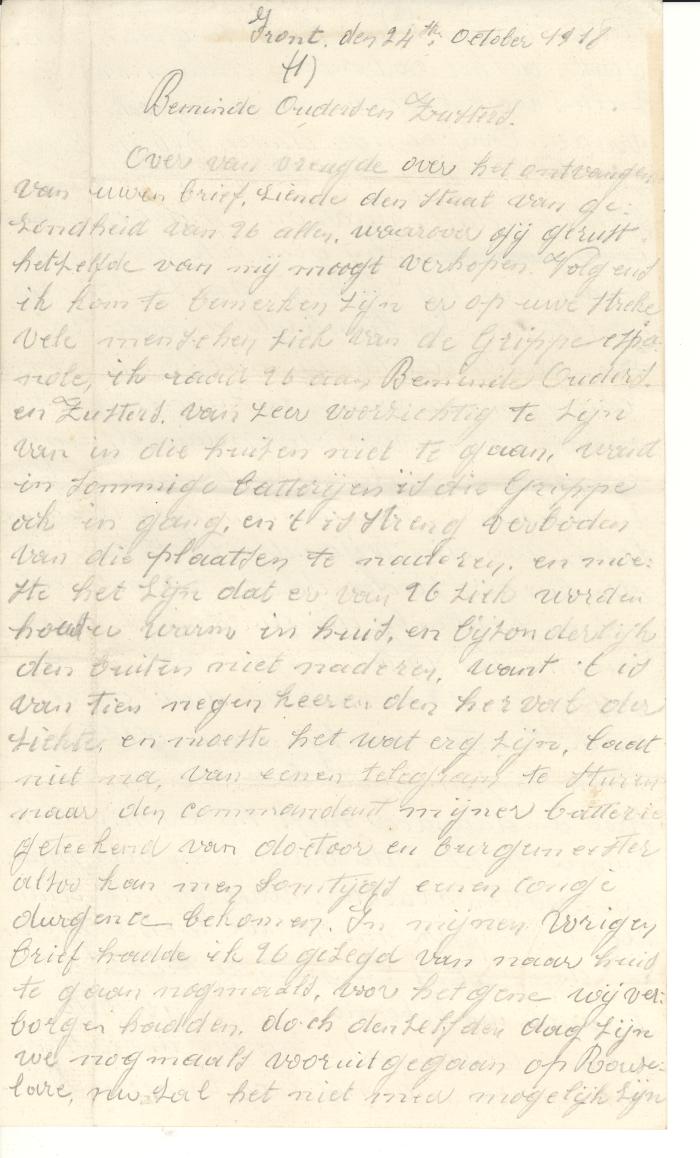 Front, den 24ste October 1918
(1)
Beminde Ouders en Zusters.
Over van vreugde over het ontvangen
van uwen brief, ziende den staat van ge-
zondheid van U allen, waarover gij gerust
hetzelfde van mij moogt verhopen. Volgens
ik kom te bemerken zijn er op uwe streke
vele menschen ziek van de Grippe espa-
nole, ik raad U aan Beminde Ouders
en Zusters. van zeer voorzichtig te zijn
van in die huizen niet te gaan, want
in sommige batterijen is die Grippe
ook in gang, en 't is streng verboden
van die plaatsen te naderen. en moe-
ste het zijn dat er van U ziek worden
houdt u warm in huis, en bijzonderlijk
den buiten niet naderen, want 't is
van tien negen keeren den herval der
ziekte, en moeste het wat erg zijn, laat
niet na, van eenen telegram te sturen
naar den commandant mijner batterie
geteekend van doctoor en burgmeester
alsoo kan men somtijds eenen congé
durgence bekomen. In mijnen vorigen
brief hadde ik U gezegd van naar huis
te gaan nogmaals, voor hetgene wij ver-
borgen hadden, doch denzelfden dag zijn
we nogmaals vooruitgegaan op Rouse-
lare, nu zal het niet meer mogelijk zijn